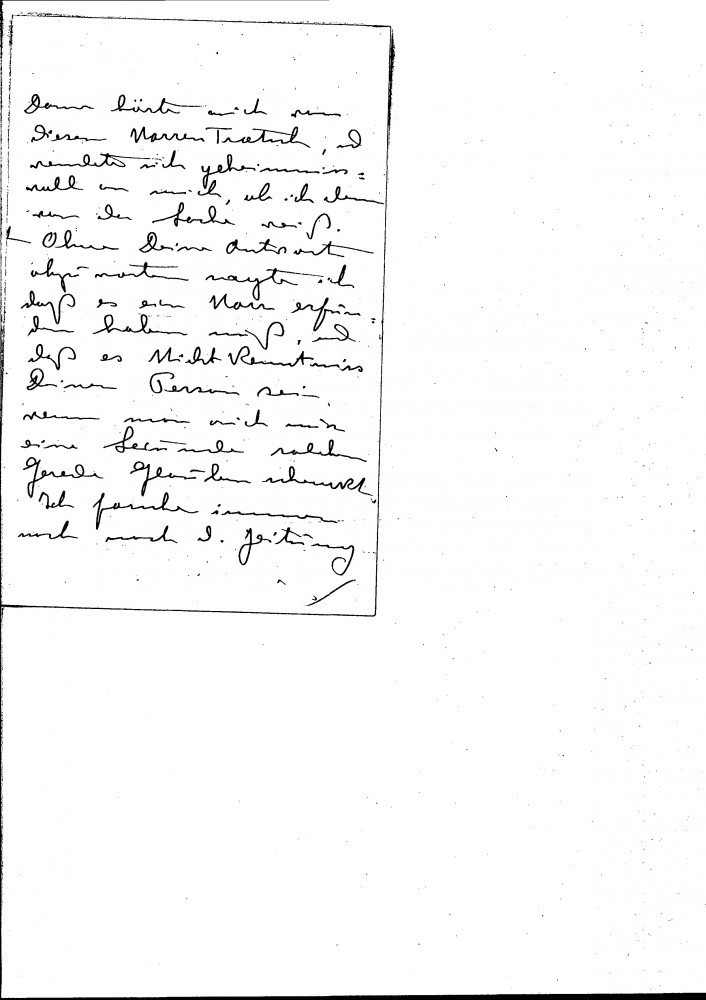 Dann hörte auch von
diesem Narren Tratsch, u
wendete sich geheimniss=
voll an mich, ob ich denn
von der Sache weiß.
Ohne Deine Antwort
abzuwarten sagte ich
daß es ein Narr erfun=
den haben muß, und
daß es Nicht Kenntniss
Deiner Person sei,
wenn man auch nur
eine Secunde solchem
Gerede Glauben schenkt.
Ich forsche immer
noch nach d. Zeitung